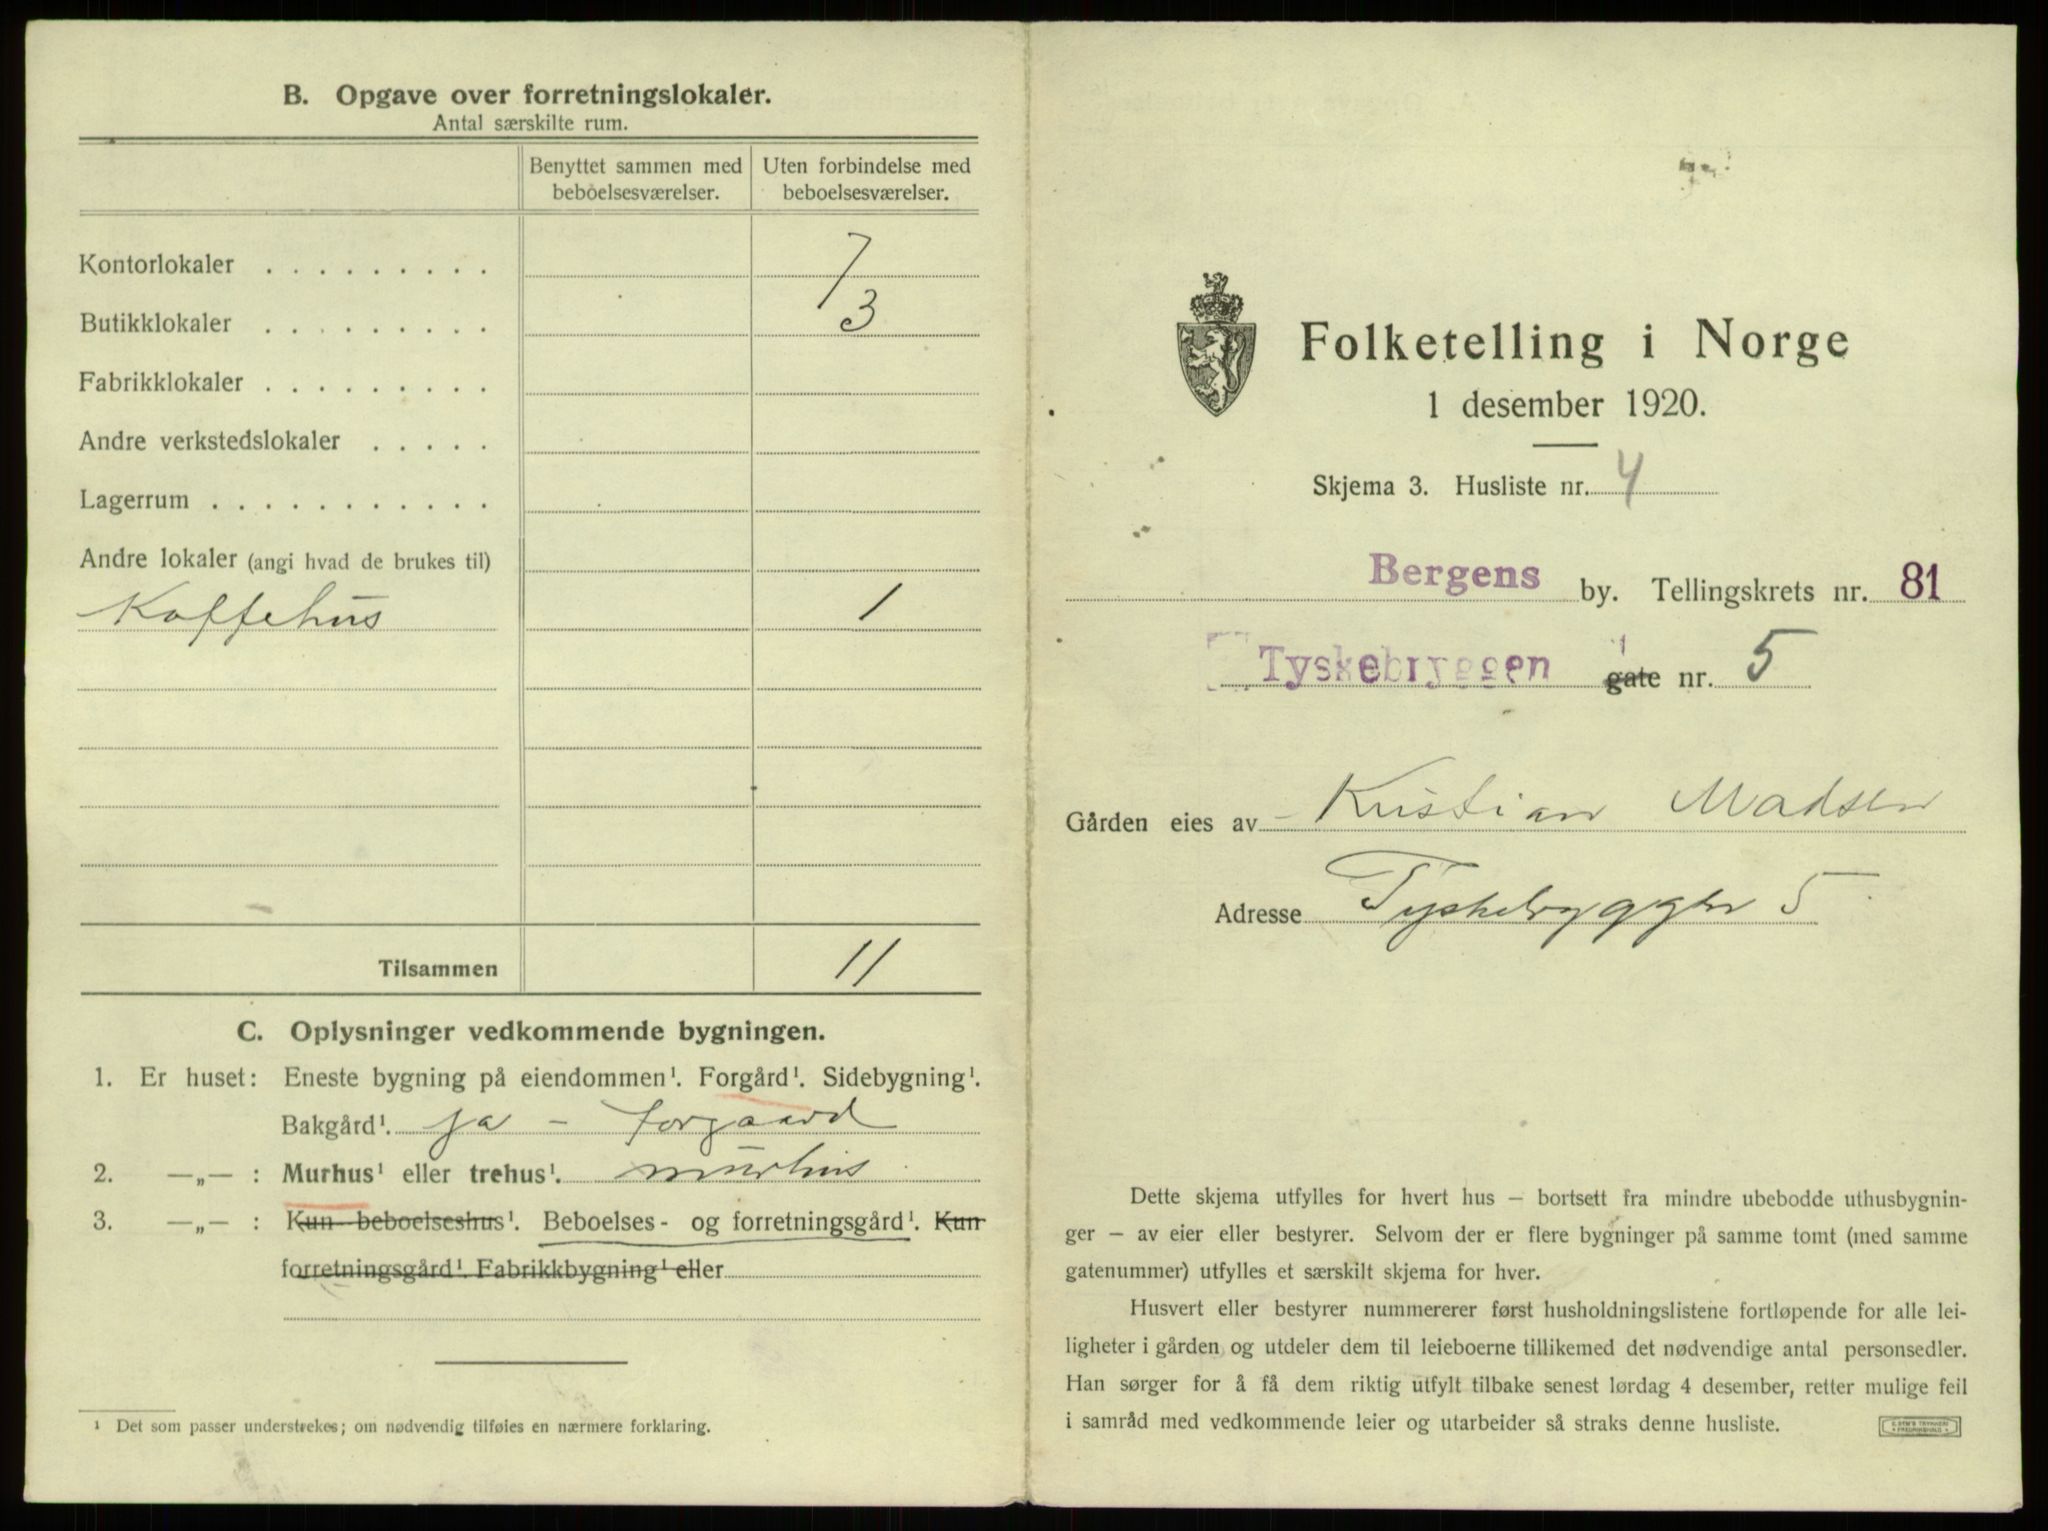 B. Opgave over forretningslokaler.
Antal særskilte rum.
Benyttet sammen med beboelsesværelser.
Uten forbindelse med beboelsesværelser.
Kontorlokaler . . . . . . . . . 7
Butikklokaler . . . . . . . . . 3
Fabrikklokaler . . . . . . . . .
Andre verkstedslokaler . . . . .
Lagerrum . . . . . . . . . . .
Andre lokaler (angi hvad de brukes til)
Kaffehus 1
Tilsammen 11
C. Oplysninger vedkommende bygningen.
1. Er huset: Eneste bygning på eiendommen¹. Forgård¹. Sidebygning¹.
Bakgård¹. ja – forgaard
2. —„— : Murhus¹ eller trehus¹. murhus
3. —„— : Kun beboelseshus¹. Beboelses- og forretningsgård¹. Kun
forretningsgård¹. Fabrikkbygning¹ eller
¹ Det som passer understrekes; om nødvendig tilføies en nærmere forklaring.
Folketelling i Norge
1 desember 1920.
Skjema 3. Husliste nr. 4
Bergens by. Tellingskrets nr. 81
Tyskebryggen gate nr. 5
Gården eies av Kristian Madsen
Adresse Tyskebryggen 5
Dette skjema utfylles for hvert hus – bortsett fra mindre ubebodde uthusbygnin-
ger – av eier eller bestyrer. Selvom der er flere bygninger på samme tomt (med samme
gatenummer) utfylles et særskilt skjema for hver.
Husvert eller bestyrer nummererer først husholdningslistene fortløpende for alle lei-
ligheter i gården og utdeler dem til leieboerne tillikemed det nødvendige antal personsedler.
Han sørger for å få dem riktig utfylt tilbake senest lørdag 4 desember, retter mulige feil
i samråd med vedkommende leier og utarbeider så straks denne husliste.